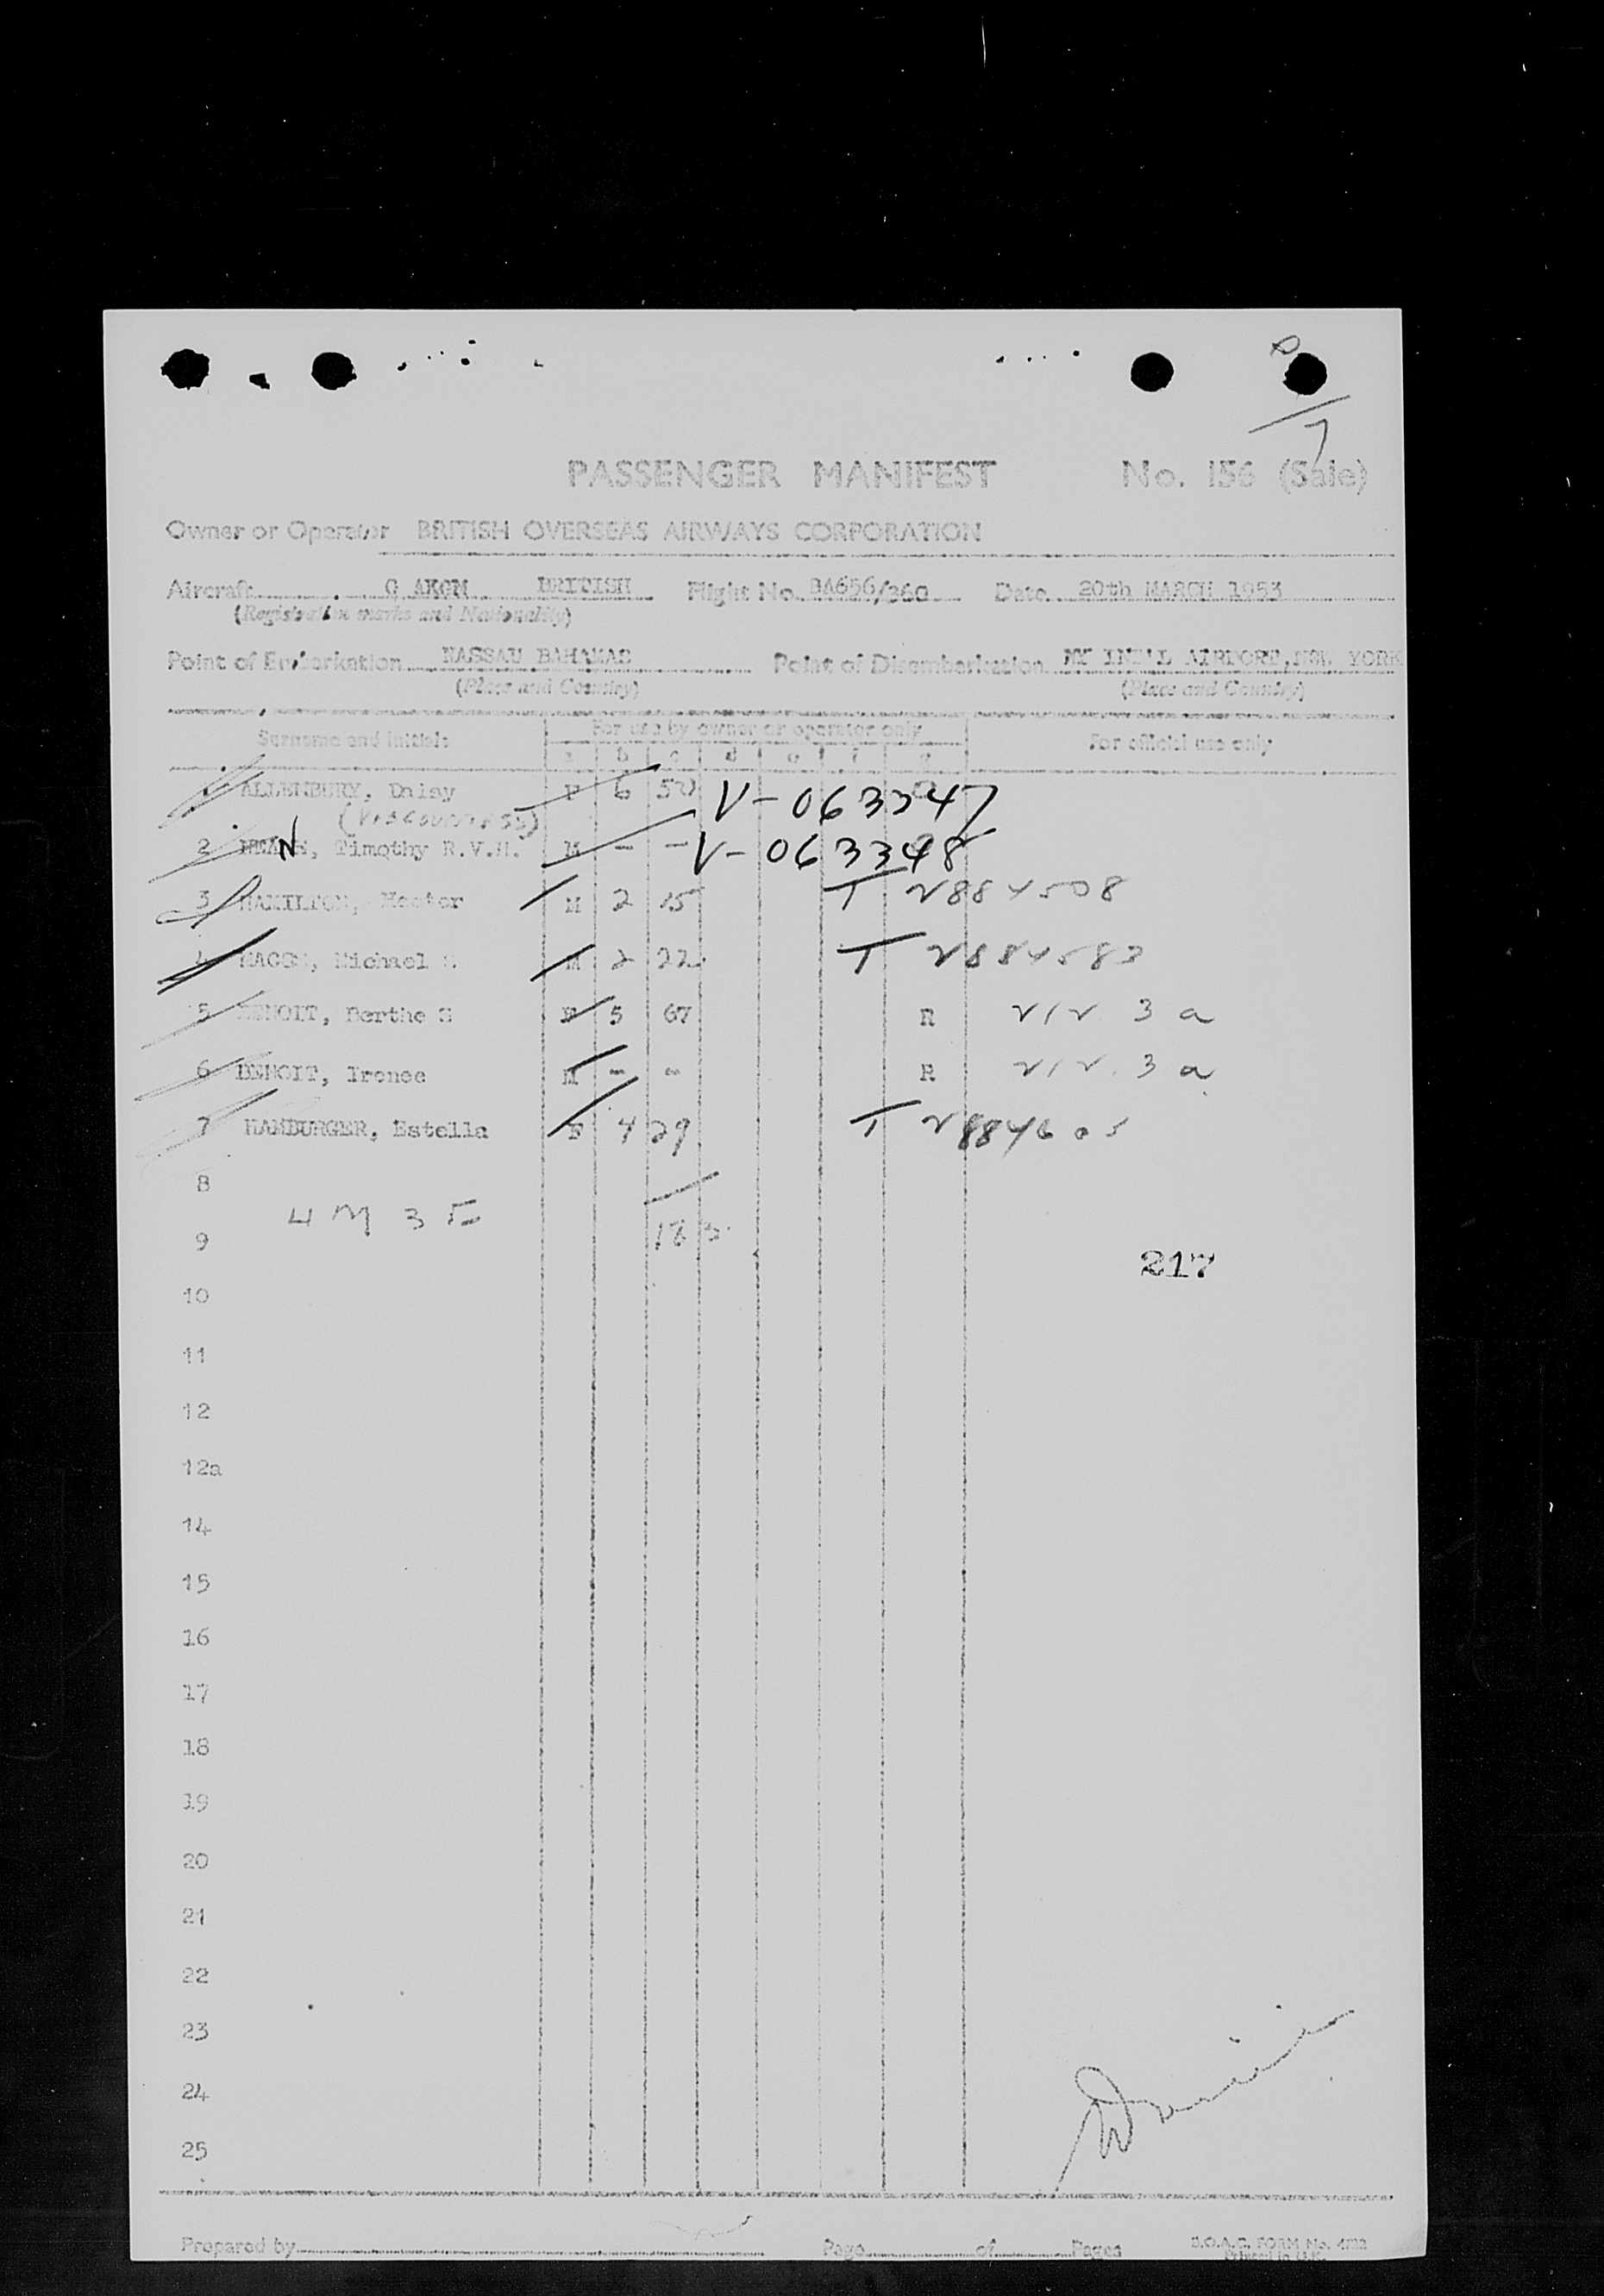 7
PASSENGER MANIFEST No. 156 (Sale)
Owner or Operator BRITISH OVERSEAS AIRWAYS CORPORATION
Aircraft G AKGM BRITISH Flight No. BA656/360 Date 20th MARCH 1953
(Registration marks and Nationality)
Point of Embarkation NASSAU BAHAMAS Point of Disembarkation NY INT'L AIRPORT, NEW YORK
(Place and Country) (Place and Country)
Surname and initials For use by owner or operator only For official use only
a b c d e f g
1 ALLENBURY, Daisy F 6 50 V-063347
(VISCOUNTESS)
2 N, Timothy R.V.H. M - - V-063348
3 HAMILTON, Hector M 2 15 T V884508
4 Michael M 2 22 T
5 BENOIT, Berthe F 5 67 R V/V 3 a
6 BENOIT, Irenee M - - R V/V 3 a
7 HAMBURGER, Estella F 4 29 T V884605
8
4 M 3 F 183
9
217
10
11
12
12a
14
15
16
17
18
19
20
21
22
23
24
25
Prepared by Page of Pages B.O.A.C. FORM No.
Printed in